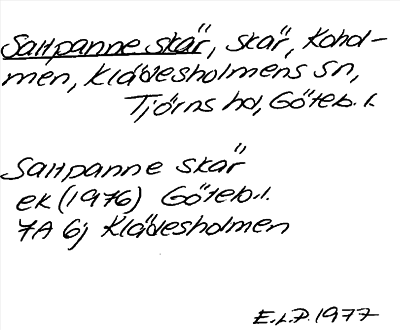 Saltpanne skär, skär, Kohol-
men, Klädesholmens sn,
Tjörns hd, Göteb. l.
Saltpanne skär
ek (1976) Göteb. l.
7A 6j Klädesholmen
E.L.P. 1977